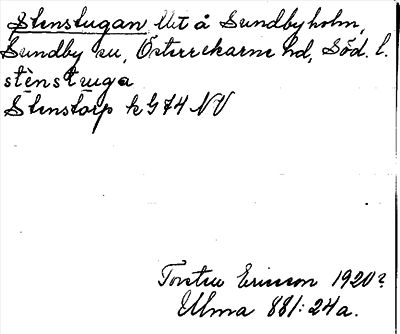 Stenstugan lht å Sundbyholm,
Sundby sn, Österrekarne hd, Söd. l.
stènstuga
Stenstorp k G 74 NV
Torsten Ericsson 1920?
Ulma 881:24a.